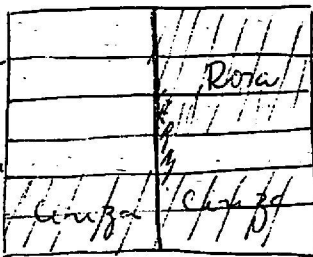 Rosa
Cinza Cinza